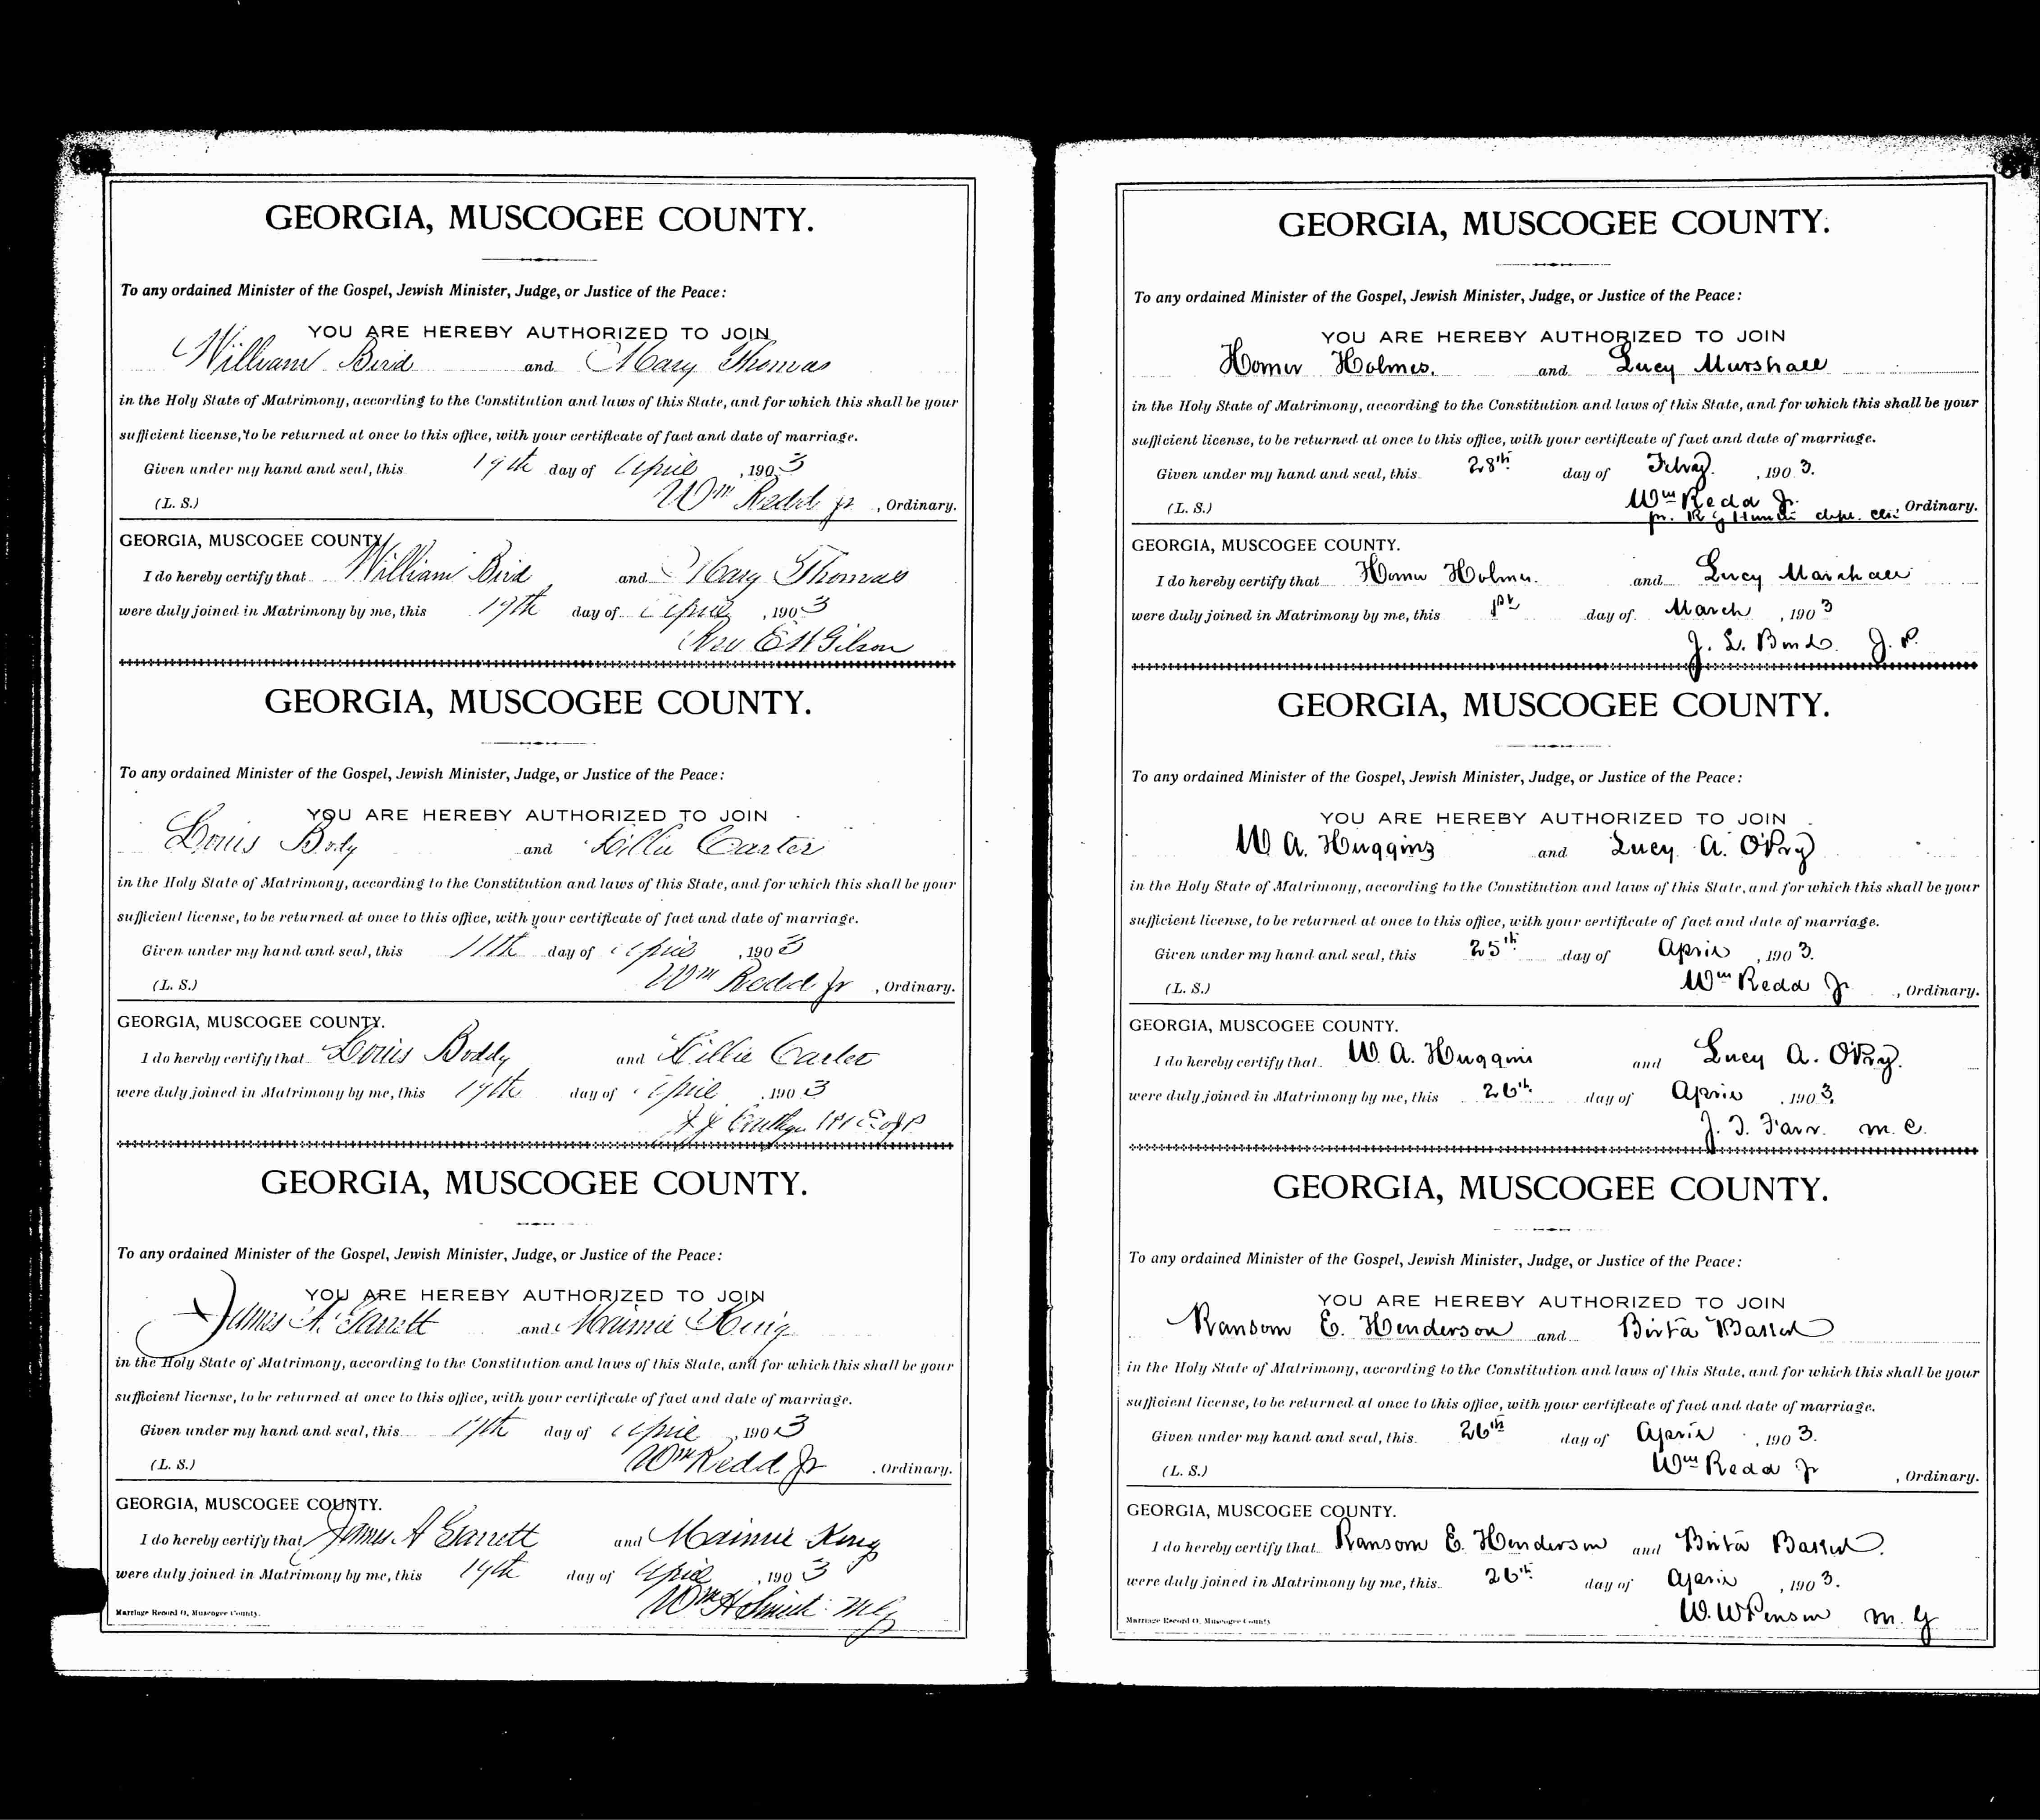 GEORGIA, MUSCOGEE COUNTY.
To any ordained Minister of the Gospel, Jewish Minister, Judge, or Justice of the Peace:
YOU ARE HEREBY AUTHORIZED TO JOIN
William Bird and Mary Thomas
in the Holy State of Matrimony, according to the Constitution and laws of this State, and for which this shall be your
sufficient license, to be returned at once to this office, with your certificate of fact and date of marriage.
Given under my hand and seal, this 19th day of April, 1903
(L. S.) Wm Redd jr, Ordinary.
GEORGIA, MUSCOGEE COUNTY
I do hereby certify that William Bird and Mary Thomas
were duly joined in Matrimony by me, this 19th day of April, 1903
Rev E H Gilson
GEORGIA, MUSCOGEE COUNTY.
To any ordained Minister of the Gospel, Jewish Minister, Judge, or Justice of the Peace:
YOU ARE HEREBY AUTHORIZED TO JOIN
Louis Body and Lillie Carter
in the Holy State of Matrimony, according to the Constitution and laws of this State, and for which this shall be your
sufficient license, to be returned at once to this office, with your certificate of fact and date of marriage.
Given under my hand and seal, this 11th day of April, 1903
(L. S.) Wm Redd Jr, Ordinary.
GEORGIA, MUSCOGEE COUNTY.
I do hereby certify that Louis Boddy and Lillie Carter
were duly joined in Matrimony by me, this 19th day of April, 1903
GEORGIA, MUSCOGEE COUNTY.
To any ordained Minister of the Gospel, Jewish Minister, Judge, or Justice of the Peace:
YOU ARE HEREBY AUTHORIZED TO JOIN
James A. Garrett and Mainnie King
in the Holy State of Matrimony, according to the Constitution and laws of this State, and for which this shall be your
sufficient license, to be returned at once to this office, with your certificate of fact and date of marriage.
Given under my hand and seal, this 19th day of April, 1903
(L. S.) Wm Redd Jr. Ordinary.
GEORGIA, MUSCOGEE COUNTY.
I do hereby certify that James A Garrett and Mainnie King
were duly joined in Matrimony by me, this 19th day of April, 1903
Wm H Smith M G
Marriage Record O, Muscogee County.
GEORGIA, MUSCOGEE COUNTY.
To any ordained Minister of the Gospel, Jewish Minister, Judge, or Justice of the Peace:
YOU ARE HEREBY AUTHORIZED TO JOIN
Homer Holmes. and Lucy Murshall
in the Holy State of Matrimony, according to the Constitution and laws of this State, and for which this shall be your
sufficient license, to be returned at once to this office, with your certificate of fact and date of marriage.
Given under my hand and seal, this 28th day of Febray. , 1903.
(L. S.) Wm Redd Jr. Ordinary.
GEORGIA, MUSCOGEE COUNTY.
I do hereby certify that Homer Holmes. and Lucy Marshall
were duly joined in Matrimony by me, this 1st day of March , 1903
J. L. Bond. J. P.
GEORGIA, MUSCOGEE COUNTY.
To any ordained Minister of the Gospel, Jewish Minister, Judge, or Justice of the Peace:
YOU ARE HEREBY AUTHORIZED TO JOIN
W. A. Huggins and Lucy A. O'Pry
in the Holy State of Matrimony, according to the Constitution and laws of this State, and for which this shall be your
sufficient license, to be returned at once to this office, with your certificate of fact and date of marriage.
Given under my hand and seal, this 25th day of April , 1903.
(L. S.) Wm Redd Jr , Ordinary.
GEORGIA, MUSCOGEE COUNTY.
I do hereby certify that W. A. Huggins and Lucy A. O'Pry.
were duly joined in Matrimony by me, this 26th day of April , 1903.
J. T. Farr. m. e.
GEORGIA, MUSCOGEE COUNTY.
To any ordained Minister of the Gospel, Jewish Minister, Judge, or Justice of the Peace:
YOU ARE HEREBY AUTHORIZED TO JOIN
Ransom E. Henderson and Birta Bassett
in the Holy State of Matrimony, according to the Constitution and laws of this State, and for which this shall be your
sufficient license, to be returned at once to this office, with your certificate of fact and date of marriage.
Given under my hand and seal, this 26th day of April , 1903.
(L. S.) Wm Redd Jr , Ordinary.
GEORGIA, MUSCOGEE COUNTY.
I do hereby certify that Ransom E. Henderson and Birta Bassett.
were duly joined in Matrimony by me, this 26th day of April , 1903.
W. W Penson m. g
Marriage Record O, Muscogee County